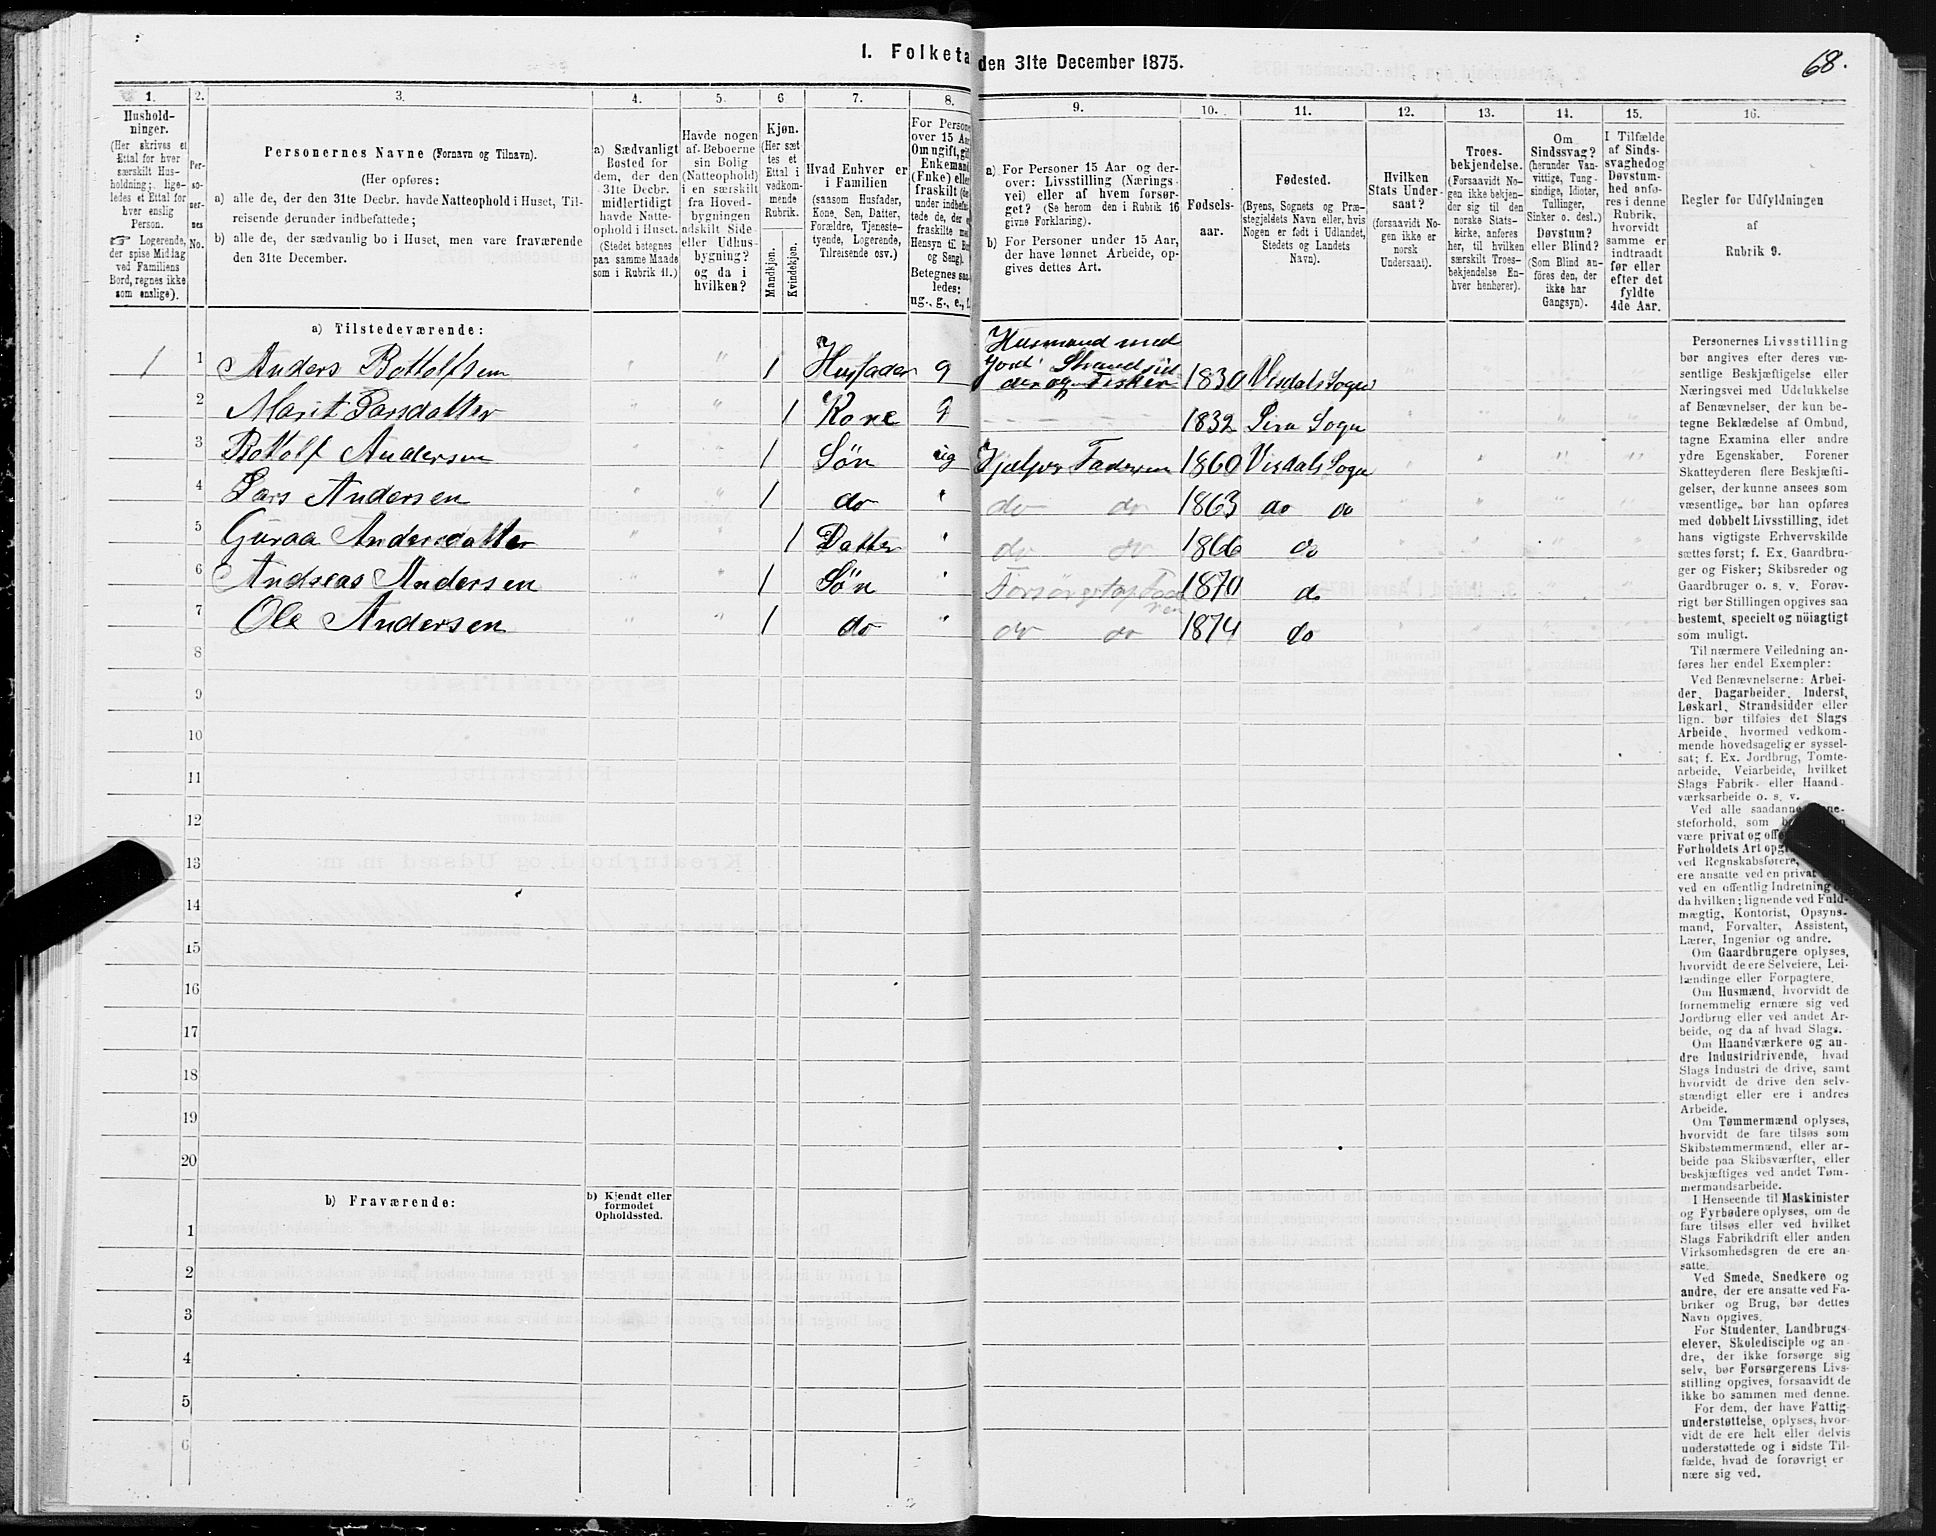 1. Folketa den 31te December 1875.
68.
1. 2. 3. 4. 5. 6 7. 8. 9. 10. 11. 12. 13. 14. 15. 16.
Hushold-
ninger.
(Her skrives et
Ettal for hver
særskilt Hus-
holdning; lige-
ledes et Ettal for
hver enslig
Person.
☞ Logerende,
der spise Middag
ved Familiens
Bord, regnes ikke
som enslige).
Per-
so-
ner-
nes
No.
Personernes Navne (Fornavn og Tilnavn).
(Her opføres:
a) alle de, der den 31te Decbr. havde Natteophold i Huset, Til-
reisende derunder indbefattede;
b) alle de, der sædvanlig bo i Huset, men vare fraværende
den 31te December.
a) Sædvanligt
Bosted for
dem, der den
31te Decbr.
midlertidigt
havde Natte-
ophold i Huset.
(Stedet betegnes
paa samme Maade
som i Rubrik 11.)
Havde nogen
af Beboerne
sin Bolig
(Natteophold)
i en særskilt
fra Hoved-
bygningen
adskilt Side-
eller Udhus-
bygning?
og da i
hvilken?
Kjøn.
(Her sæt-
tes et
Ettal i
vedkom-
mende
Rubrik.
Mandkjøn.
Kvindekjøn.
Hvad Enhver er
i Familien
(saasom Husfader,
Kone, Søn, Datter,
Forældre, Tjeneste-
tyende, Logerende,
Tilreisende osv.)
For Persone
over 15 Aa
Om ugift, gif
Enkemand
(Enke) elle
fraskilt (der
under indbefat-
tede de, der er
fraskilte med
Hensyn til Bo
og Seng).
Betegnes saa
ledes:
ug., g., e., f.
a) For Personer 15 Aar og der-
over: Livsstilling (Nærings-
vei) eller af hvem forsør-
get? (Se herom den i Rubrik 16
givne Forklaring).
b) For Personer under 15 Aar,
der have lønnet Arbeide, op-
gives dettes Art.
Fødsels-
aar.
Fødested.
(Byens, Sognets og Præ-
stegjeldets Navn eller, hvis
Nogen er født i Udlandet,
Stedets og Landets
Navn).
Hvilken
Stats Under-
saat?
(forsaavidt No-
gen ikke er
norsk
Undersaat).
Troes-
bekjendelse.
(Forsaavidt No-
gen ikke bekjen-
der sig til den
norske Stats-
kirke, anføres
her, til hvilken
særskilt Troes-
bekjendelse En-
hver henhører).
Om
Sindssvag?
(herunder Van-
vittige, Tung-
sindige, Idioter,
Tullinger,
Sinker o. desl.)
Døvstum?
eller Blind?
(Som Blind an-
føres den, der
ikke har
Gangsyn).
I Tilfælde
af Sinds-
svaghed og
Døvstum-
hed anfø-
res i denne
Rubrik,
hvorvidt
samme er
indtraadt
før eller
efter det
fyldte
4de Aar.
Regler for Udfyldningen
af
Rubrik 9.
a) Tilstedeværende:
Husmand med
Jord Strandsid
1 1 Anders Bottolfsen " " 1 Husfader g der og Fisker 1830 Visdals Sogn
2 Marit Larsdatter " " 1 Kone g 1832 Lira Sogn
3 Bottolf Andersen " " 1 Søn ug Hjælper Faderen 1860 Visdals Sogn
4 Lars Andersen " " 1 do " do do 1863 do do
5 Guraa Andersdatter " " 1 Datter " do do 1866 do
6 Andreas Andersen " " 1 Søn " Forsørget af Fade
ren 1870 do
7 Ole Andersen " " 1 do " do do 1874 do
8
9
10
11
12
13
14
15
16
17
18
19
20
b) Fraværende:
b) Kjendt eller
formodet
Opholdssted.
1
2
3
4
5
6
Personernes Livsstilling
bør angives efter deres væ-
sentlige Beskjæftigelse eller
Næringsvei med Udelukkelse
af Benævnelser, der kun be-
tegne Beklædelse af Ombud,
tagne Examina eller andre
ydre Egenskaber. Forener
Skatteyderen flere Beskjæfti-
gelser, der kunne ansees som
væsentlige, bør han opføres
med dobbelt Livsstilling, idet
hans vigtigste Erhvervskilde
sættes først; f. Ex. Gaardbru-
ger og Fisker; Skibsreder og
Gaardbruger o. s. v. Forøv-
rigt bør Stillingen opgives saa
bestemt, specielt og nöiagtigt
som muligt.
Til nærmere Veiledning an-
føres her endel Exempler:
Ved Benævnelserne: Arbei-
der, Dagarbeider, Inderst,
Løskarl, Strandsidder eller
lign. bør tilføies det Slags
Arbeide, hvormed vedkom-
mende hovedsagelig er syssel-
sat; f. Ex. Jordbrug, Tomte-
arbeide, Veiarbeide, hvilket
Slags Fabrik- eller Haand-
værksarbeide o. s. v.
Ved alle saadanne
steforhold, som
være privat og
Forholdets Art
ved Regnskabsførere,
ere ansatte ved en privat
ved en offentlig Indretning
da hvilken; lignende ved Fuld-
mægtig, Kontorist, Opsyns-
mand, Forvalter, Assistent,
Lærer, Ingeniør og andre.
Om Gaardbrugere oplyses,
hvorvidt de ere Selveiere, Lei-
lændinge eller Forpagtere.
Om Husmænd, hvorvidt de
fornemmelig ernære sig ved
Jordbrug eller ved andet Ar-
beide, og da af hvad Slags.
Om Haandværkere og an-
dre Industridrivende, hvad
Slags Industri de drive, samt
hvorvidt de drive den selv-
stændigt eller ere i andres
Arbeide.
Om Tømmermænd oplyses,
hvorvidt de fare tilsøs som
Skibstømmermænd, eller ar-
beide paa Skibsværfter, eller
beskjæftiges ved andet Tøm-
mermandsarbeide.
I Henseende til Maskinister
og Fyrbødere oplyses, om de
fare tilsøs eller ved hvilket
Slags Fabrikdrift eller anden
Virksomhedsgren de ere an-
satte.
Ved Smede, Snedkere og
andre, der ere ansatte ved Fa-
briker og Brug, bør dettes
Navn opgives.
For Studenter, Landbrugs-
elever, Skoledisciple og an-
dre, der ikke forsørge sig
selv, bør Forsørgerens Livs-
stilling opgives, forsaavidt de
ikke bo sammen med denne.
For dem, der have Fattig-
understøttelse, oplyses, hvor-
vidt de ere helt eller delvis
understøttede og i sidste Til-
fælde, hvad de forøvrigt er-
nære sig ved.